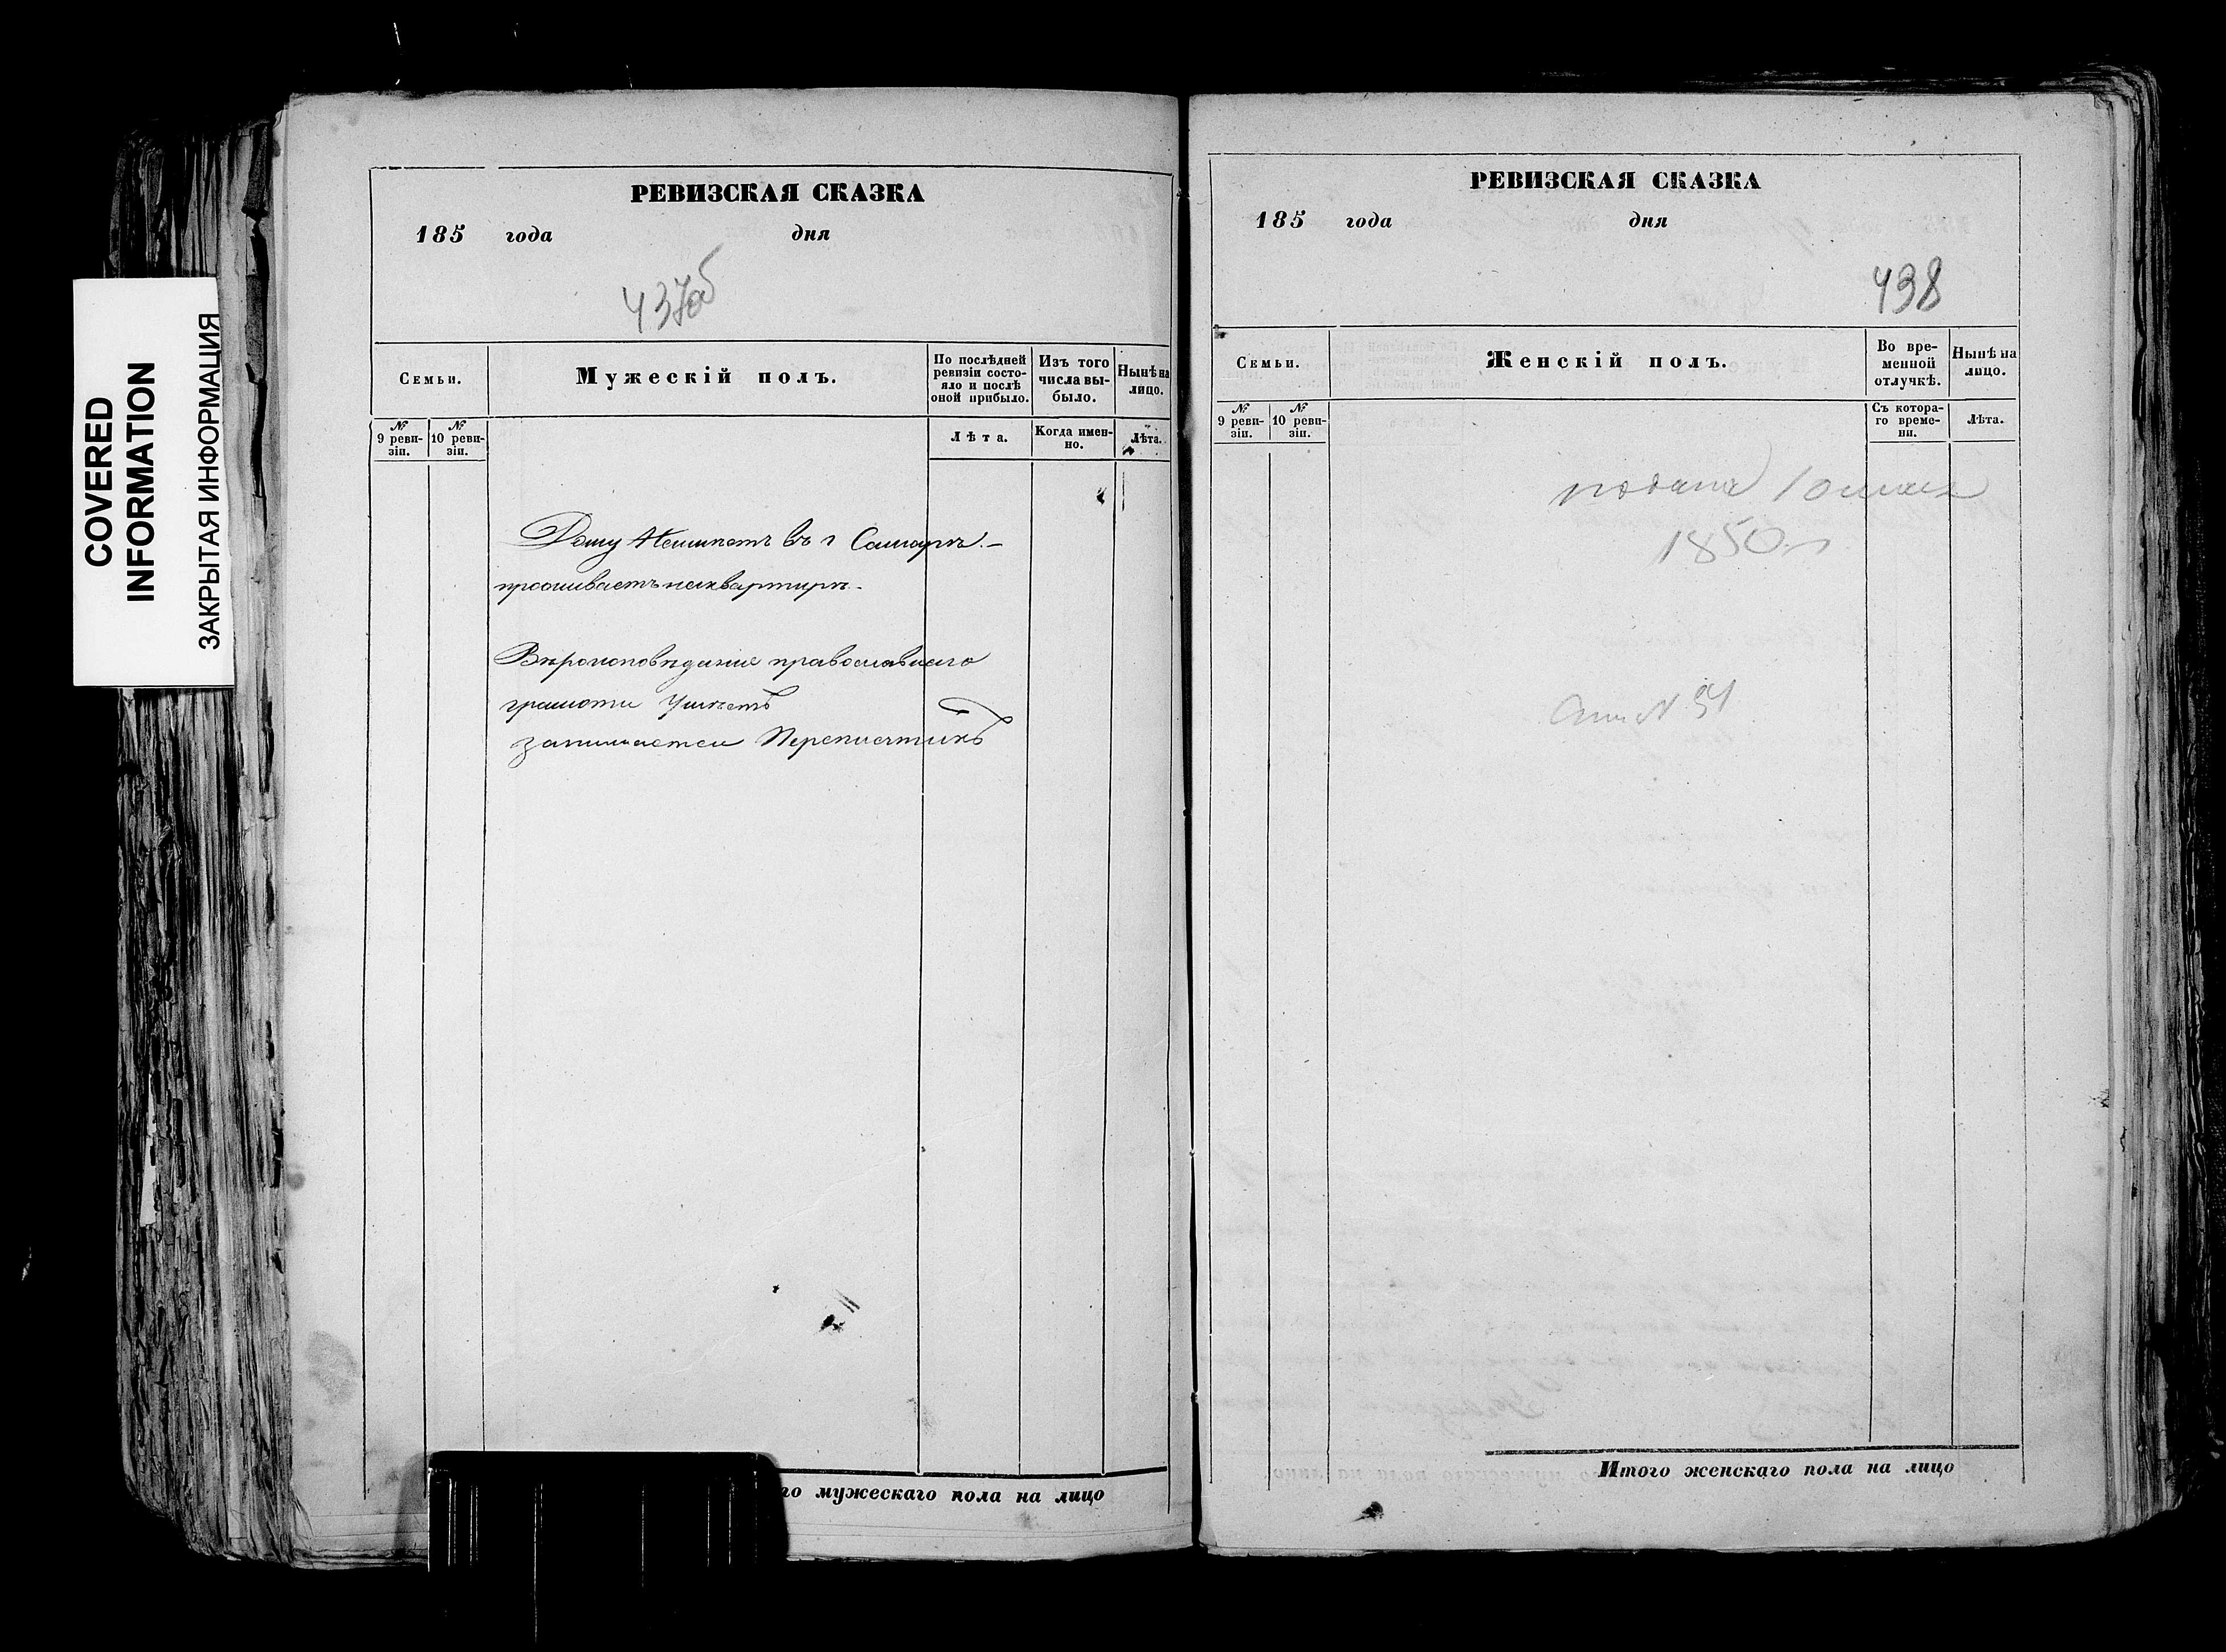 COVERED
INFORMATION
ЗАКРЫТАЯ ИНФОРМАЦИЯ
РЕВИЗСКАЯ СКАЗКА
185 года дня
437об
Семьи.
Мужескій полъ.
По послѣдней
ревизіи состо-
яло и послѣ
оной прибыло.
Изъ того
числа вы-
было.
Нынѣ на
лицо.
№
9 реви-
зіи.
№
10 реви-
зіи.
Лѣта.
Когда имен-
но.
Лѣта.
Дому Неимѣетъ въ г Самарѣ.-
проживаетъ наквартирѣ.
Вѣроисповѣдания православнаго
грамоти Умѣетъ
занимается
го мужескаго пола на лицо
РЕВИЗСКАЯ СКАЗКА
185 года дня
438
Семьи.
Женскій полъ.
Во вре-
менной
отлучкѣ.
Нынѣ на
лицо.
№
9 реви-
зіи.
№
10 реви-
зіи.
Съ котора-
го време-
ни.
Лѣта.
подана
1850
Итого женскаго пола на лицо